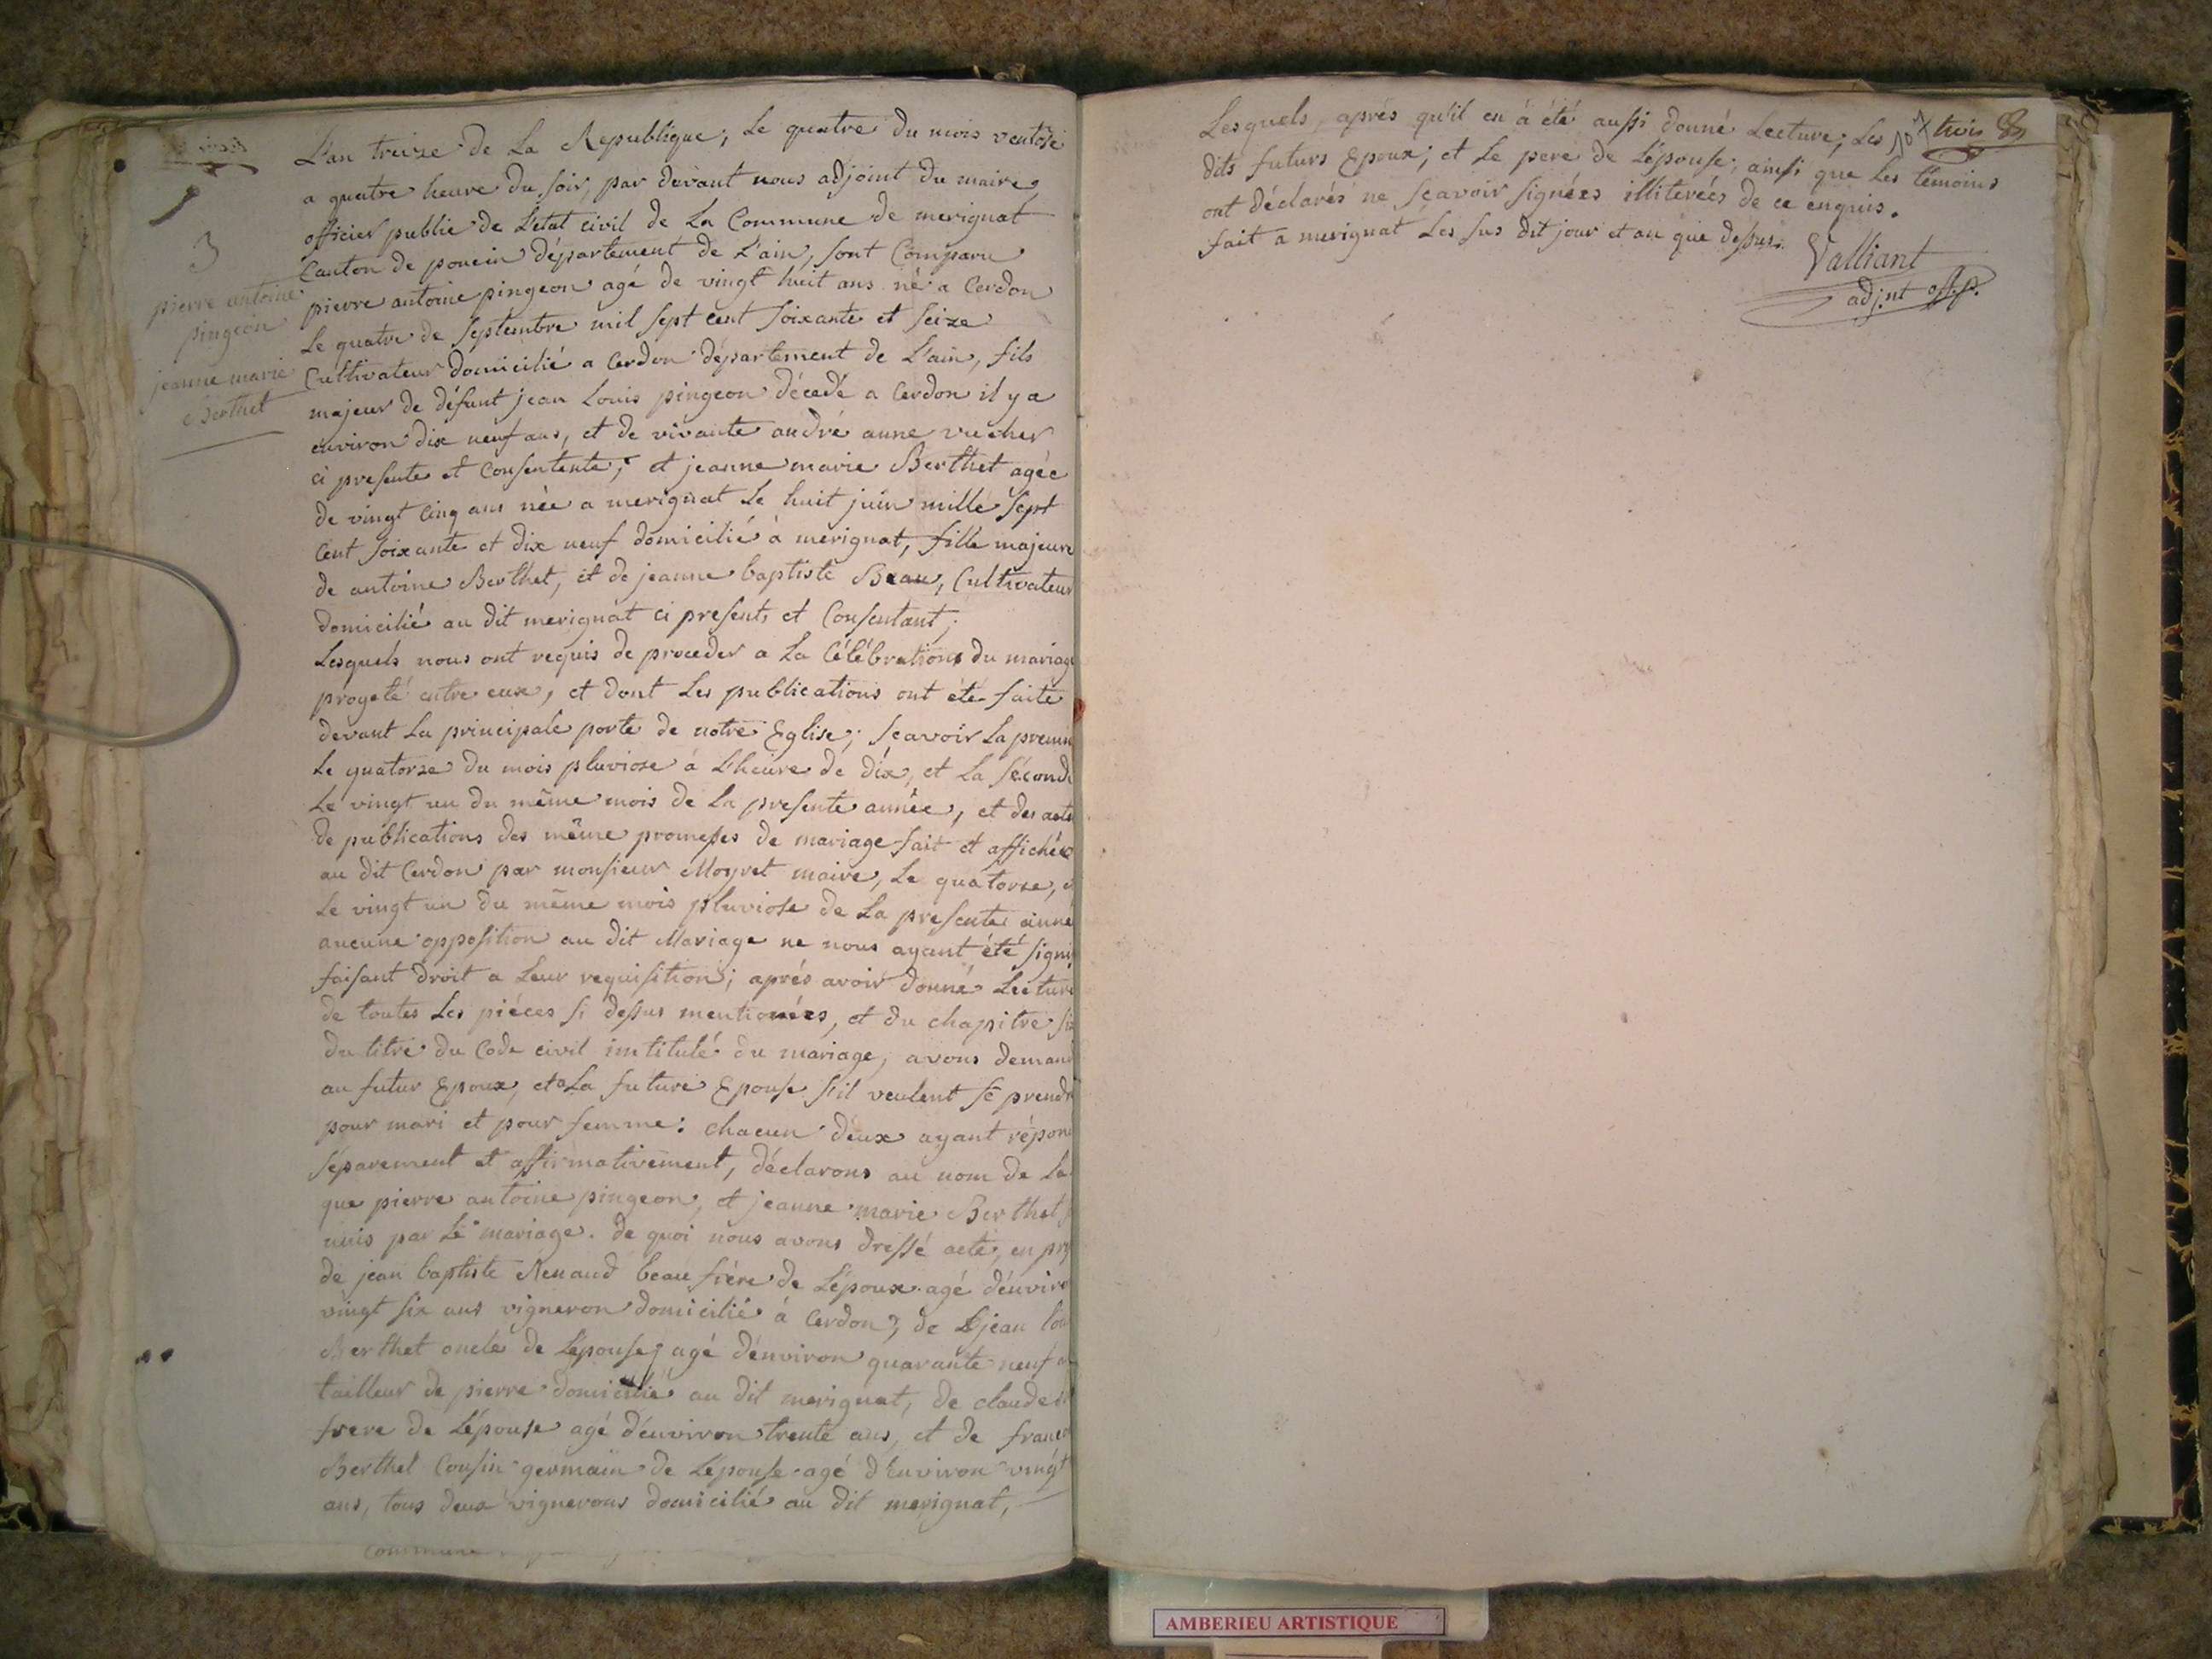 3
pierre antoine
pingeon
jeanne marie
Berthet
L'an treize de La Republique, Le quatre du mois ventose
a quatre heure du soir, par devant nous adjoint du maire,
officier public de L'etat civil de La Commune de merignat
Canton de poncin département de L'ain, sont Comparu
pierre antoine pingeon agé de vingt huit ans né a Cerdon
Le quatre de Septembre mil sept cent soixante et seize
Cultivateur domicilié a Cerdon département de L'ain, fils
majeur de défunt jean Louis pingeon décedé a Cerdon il y a
environ dix neuf ans, et de vivante andré anne vucher
ci presente et Consentente; et jeanne marie Berthet agée
de vingt cinq ans née a merignat Le huit juin mille sept
Cent soixante et dix neuf domicilié à merignat, fille majeure
de antoine Berthet, et de jeanne baptiste Beau, Cultivateur
domicilié au dit merignat ci present et Consentant;
Lesquels nous ont requis de proceder a La Célébration du mariage
progeté entre eux, et dont Les publications ont été faite
devant La principale porte de notre Eglise; sçavoir La premi
Le quatorze du mois pluviose à L'heure de dix, et La séconde
Le vingt un du même mois de La presente année, et des acte
de publications des même promesses de mariage fait et affichée
au dit Cerdon par monsieur Moyret maire, Le quatorze, e
Le vingt un du même mois pluviose de La presente anné
aucune opposition au dit Mariage ne nous ayant été signi
faisant droit a Leur requisition; aprés avoir donné Lecture
de toutes Les piéces si dessus mentionées, et du chapitre si
du titre du Code civil imtitulé du mariage, avons deman
au futur Epoux, et a La future Epouse s'il veulent se prendr
pour mari et pour femme: chacun d'eux ayant répon
séparement et affirmativement, déclarons au nom de La
que pierre antoine pingeon, et jeanne marie Berthet
unis par Le mariage. de quoi nous avons dressé acte, en pre
de jean baptiste Renaud beau frère de L'époux agé d'enviro
vingt six ans vigneron domicilié à Cerdon, de jean Lou
Berthet oncle de L'epouse, agé d'environ quarante neuf a
tailleur de pierre domicilié au dit merignat, de claude
frere de L'épouse agé d'environ trente ans, et de franç
Berthet Cousin germain de L'épouse agé d'Environ vingt
ans, tous deux vignerons domicilié au dit merignat,
trois
Lesquels, aprés qu'il en á été aussi donné Lecture; Les
dits futurs Epoux; et Le pere de L'épouse; ainsi que Les témoins
ont déclarés ne sçavoir signées illiterées de ce enquis.
fait a merignat Les sus dit jour et an que dessus.
Valliant
adj.nt off. p.
AMBERIEU ARTISTIQUE